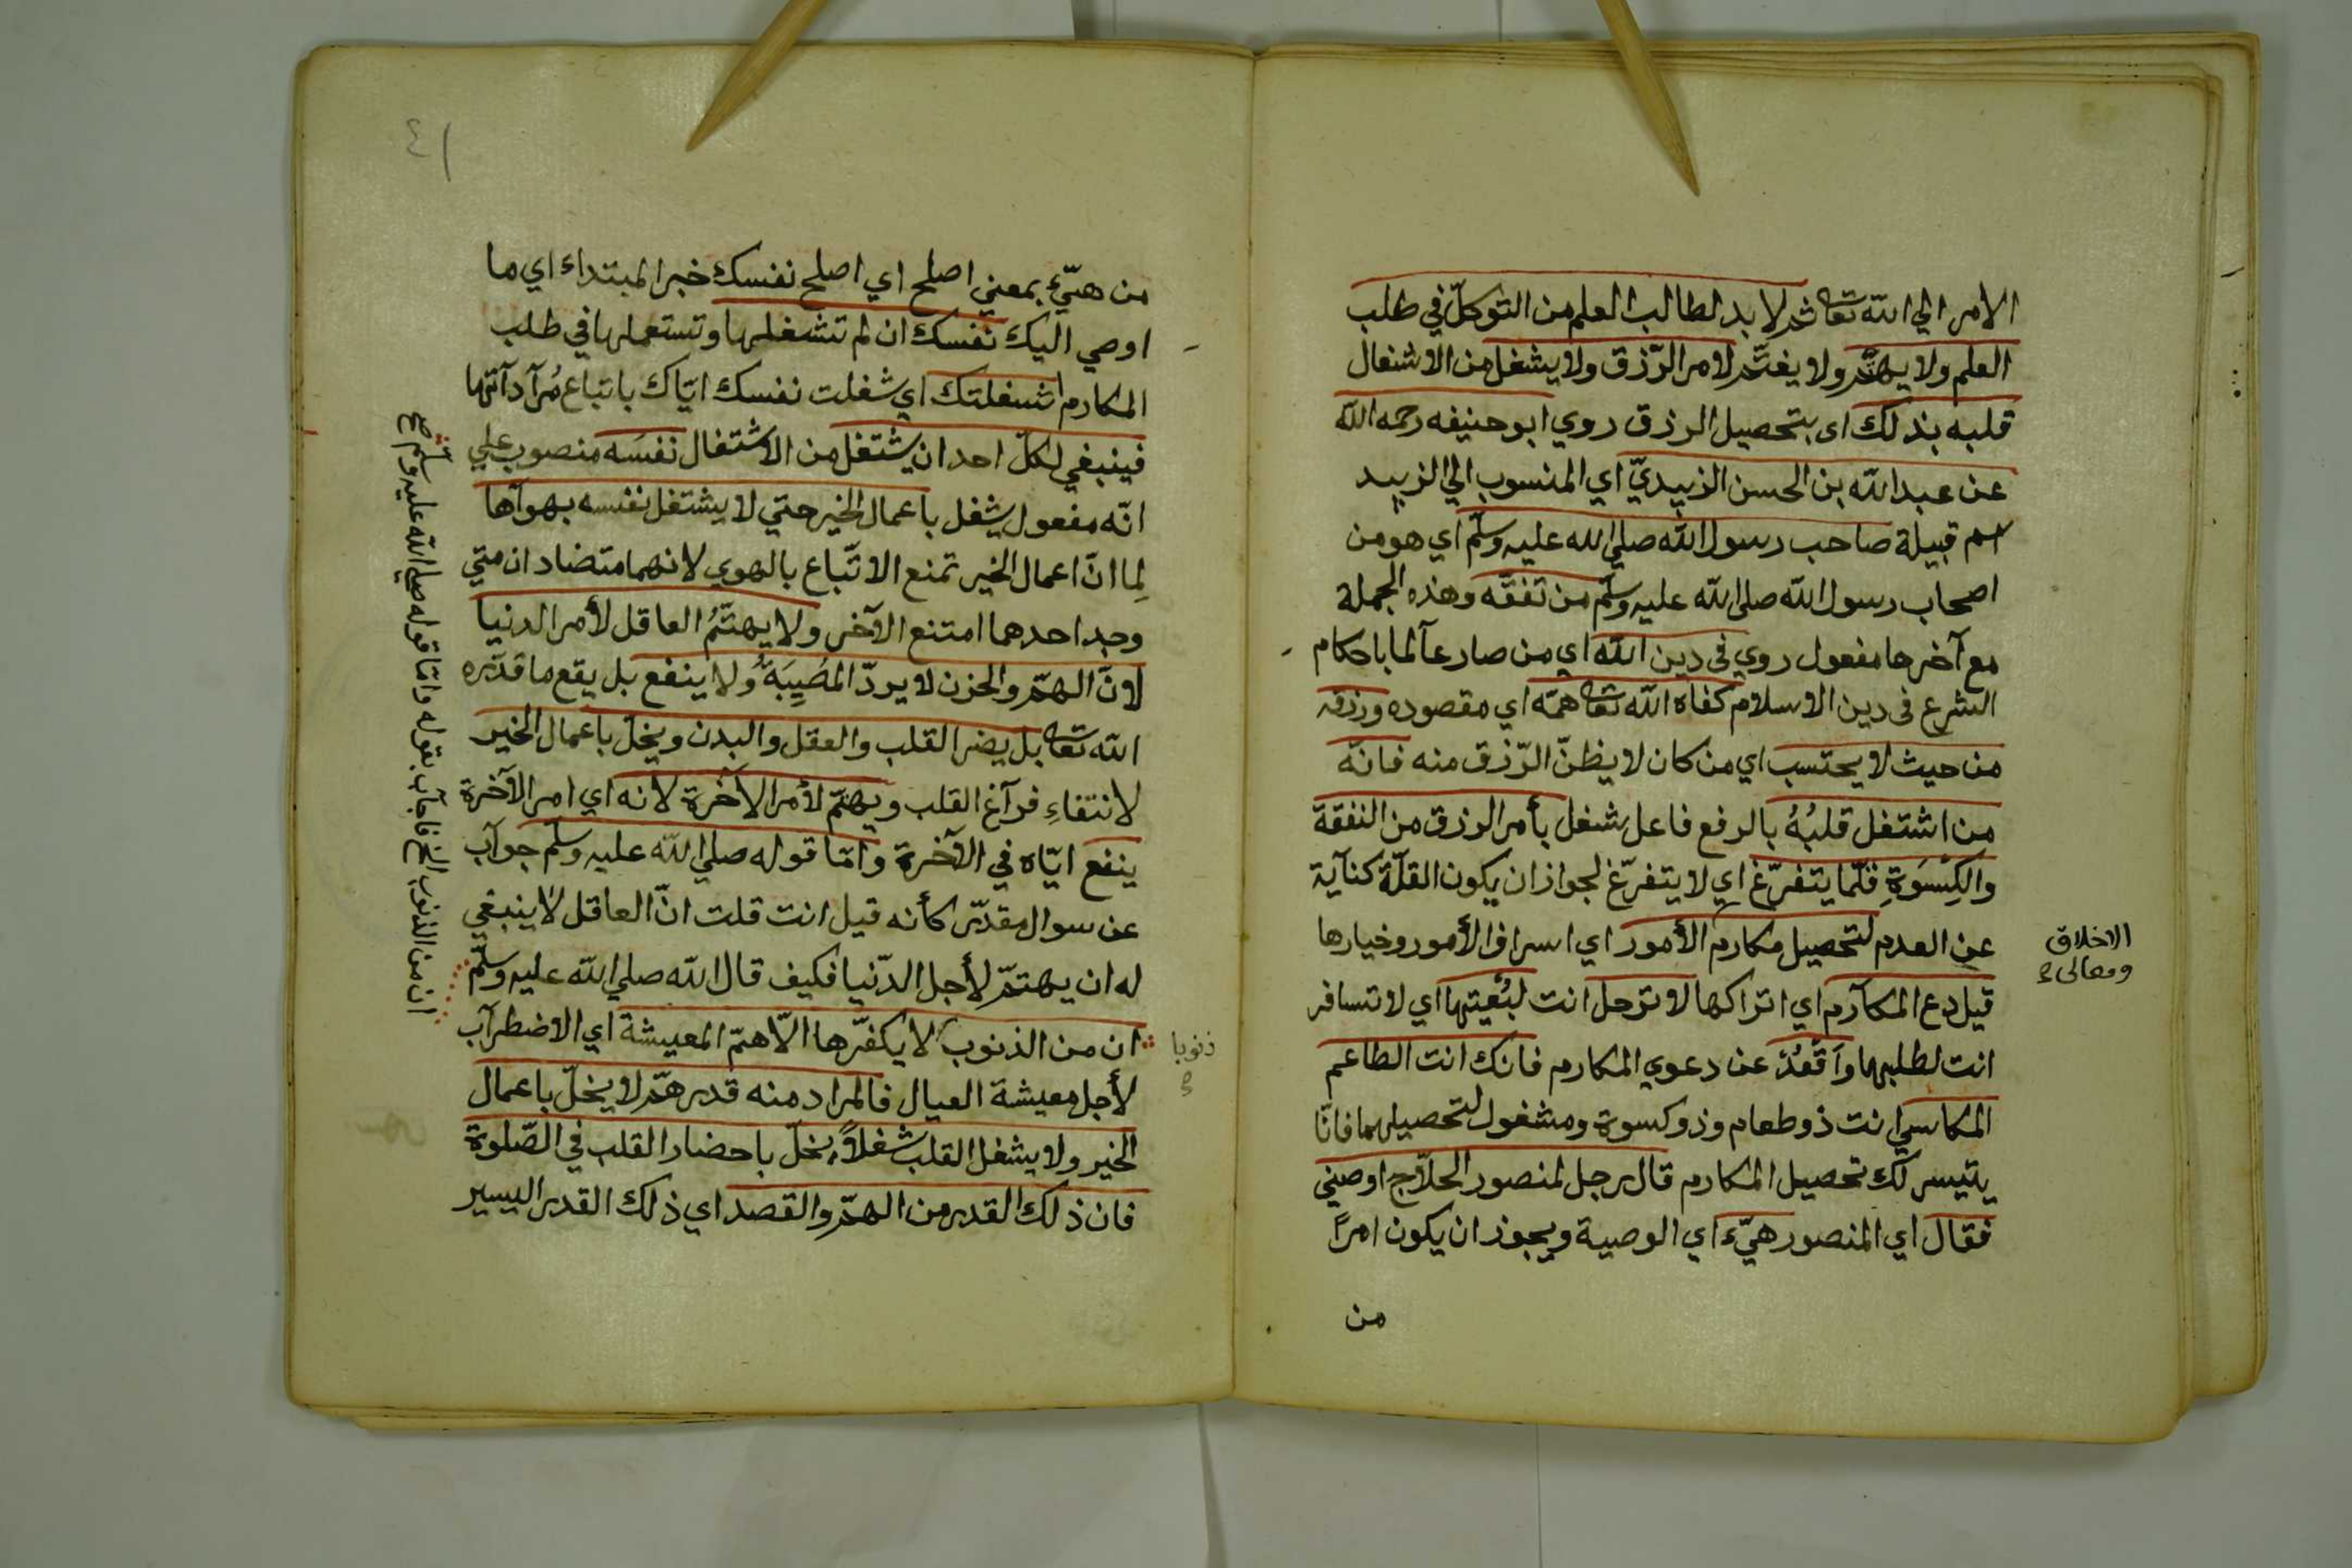 الامر الي الله تعا ثم لا بد لطالب العلم من التوكل في طلب
العلم ولا يهتم ولا يغتم لامر الرزق ولا يشغل من الاشغال
قلبه بذلك اى بتحصيل الرزق روي ابو حنيفه رحمه الله
عن عبد الله بن الحسن الزبيديّ اي المنسوب الي الزبيد
اسم قبيلة صاحب رسول الله صلي الله عليه وسلم اي هو من
اصحاب رسول الله صلى الله عليه وسلم من تفقّه وهذه الجملة
مع آخرها مفعول روي فى دين الله اي من صار عآلما باحكام
الشرع فى دين الاسلام كفاه الله تعا همّه اي مقصوده ورزقه
من حيث لا يحتسب اي من كان لا يظنّ الرّزق منه فانّه
من اشتغل قلبُهُ بالرفع فاعل شغل بأمر الرزق من النفقة
والكِسوَةِ قلّما يتفرّغ اي لا يتفرّغ لجواز ان يكون القلّة كنآية
عن العدم لتحصيل مكارم الأمور اي اسراف الأمور وخيارها
الاخلاق
ومعالى
قيل دع المكآرم اي اتراكها لا ترحل انت لبُغيتها اي لا تسافر
انت لطلبها وَاقعُدْ عن دعوي المكارم فانك انت الطاعم
المكاسي انت ذو طعام وذو كسوة ومشغول لتحصيلهما فانّا
يتيسر لك تحصيل المكارم قال رجل لمنصور الحلّاج اوصني
فقال اي المنصور هيّء اي الوصية ويجوز ان يكون امرًا
من
٤١
من هيّء بمعني اصلح اي اصلح نفسك خبر المبتداء اي ما
اوصي اليك نفسك ان لم تشغلها وتستعملها في طلب
المكارم شغلتك اي شغلت نفسك ايّاك باتباع مُرآدآتها
فينبغي لكلّ احد ان يشتغل من الاشتغال نفسَه منصوب علي
انّه مفعول يشغل باعمال الخير حتي لا يشتغل نفسه بهوآها
لِما انّ اعمال الخير تمنع الاتّباع بالهوي لانهما متضادان متي
وجد احدهما امتنع الآخر ولا يهتمُّ العاقل لأمر الدنيا
لانّ الهمّ والحزن لا يردّ المُصِيبَةُ ولا ينفع بل يقع ما قدّره
الله تعا بل يضر القلب والعقل والبدن ويخلّ باعمال الخير
لانتفاءِ فرآغ القلب ويهتمّ لأمر الآخرة لانه اي امر الآخرة
ينفع ايّاه في الآخرة وامّا قوله صلي الله عليه وسلّم جوآب
عن سوال مقدّر كأنه قيل انت قلت انّ العاقل لا ينبغي
له ان يهتمّ لأجل الدّنيا فكيف قال الله صلي الله عليه وسلّم
ان من الذنوب لا يكفّرها الّا همّ المعيشة اي الاضطرآب
ذنوبا
لأجل معيشة العيال فالمراد منه قدر همّ لا يخلّ باعمال
الخير ولا يشغل القلب شغلاً يخلّ باحضار القلب في الصّلوة
فان ذلك القدر من الهمّ والقصد اي ذلك القدر اليسير
ان من الذنوب الخ فاجآب بقوله وامّا قوله صلي الله عليه وسلم صح